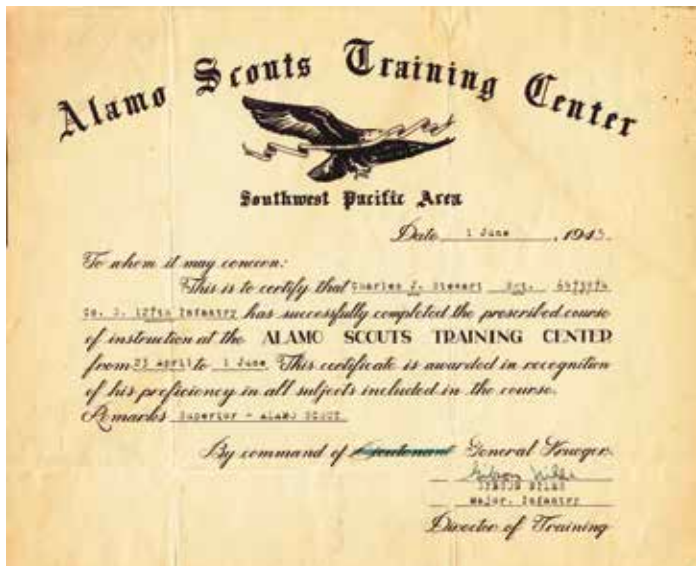 Alamo Scouts Training Center
Southwest Pacific Area
Date 1 June, 1945.
To whom it may concern:
This is to certify that Charles J. Stewart Sgt.
Co. 127th Infantry has successfully completed the prescribed course
of instruction at the ALAMO SCOUTS TRAINING CENTER
from 23 April to 1 June This certificate is awarded in recognition
of his proficiency in all subjects included in the course.
Remarks Superior - ALAMO SCOUT
By command of Lieutenant General Krueger.
Gibson Niles
GIBSON NILES
Major, Infantry
Director of Training